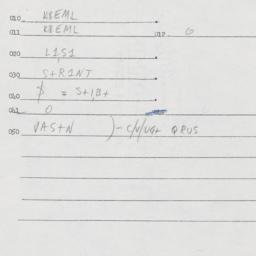 010 K8EML
011 K8EML 012 G
020 L1,S1
030 S+R1NT
040 $ = S+1,B+
041 0
050 VAS+N )-C/V/UG+ QRUS